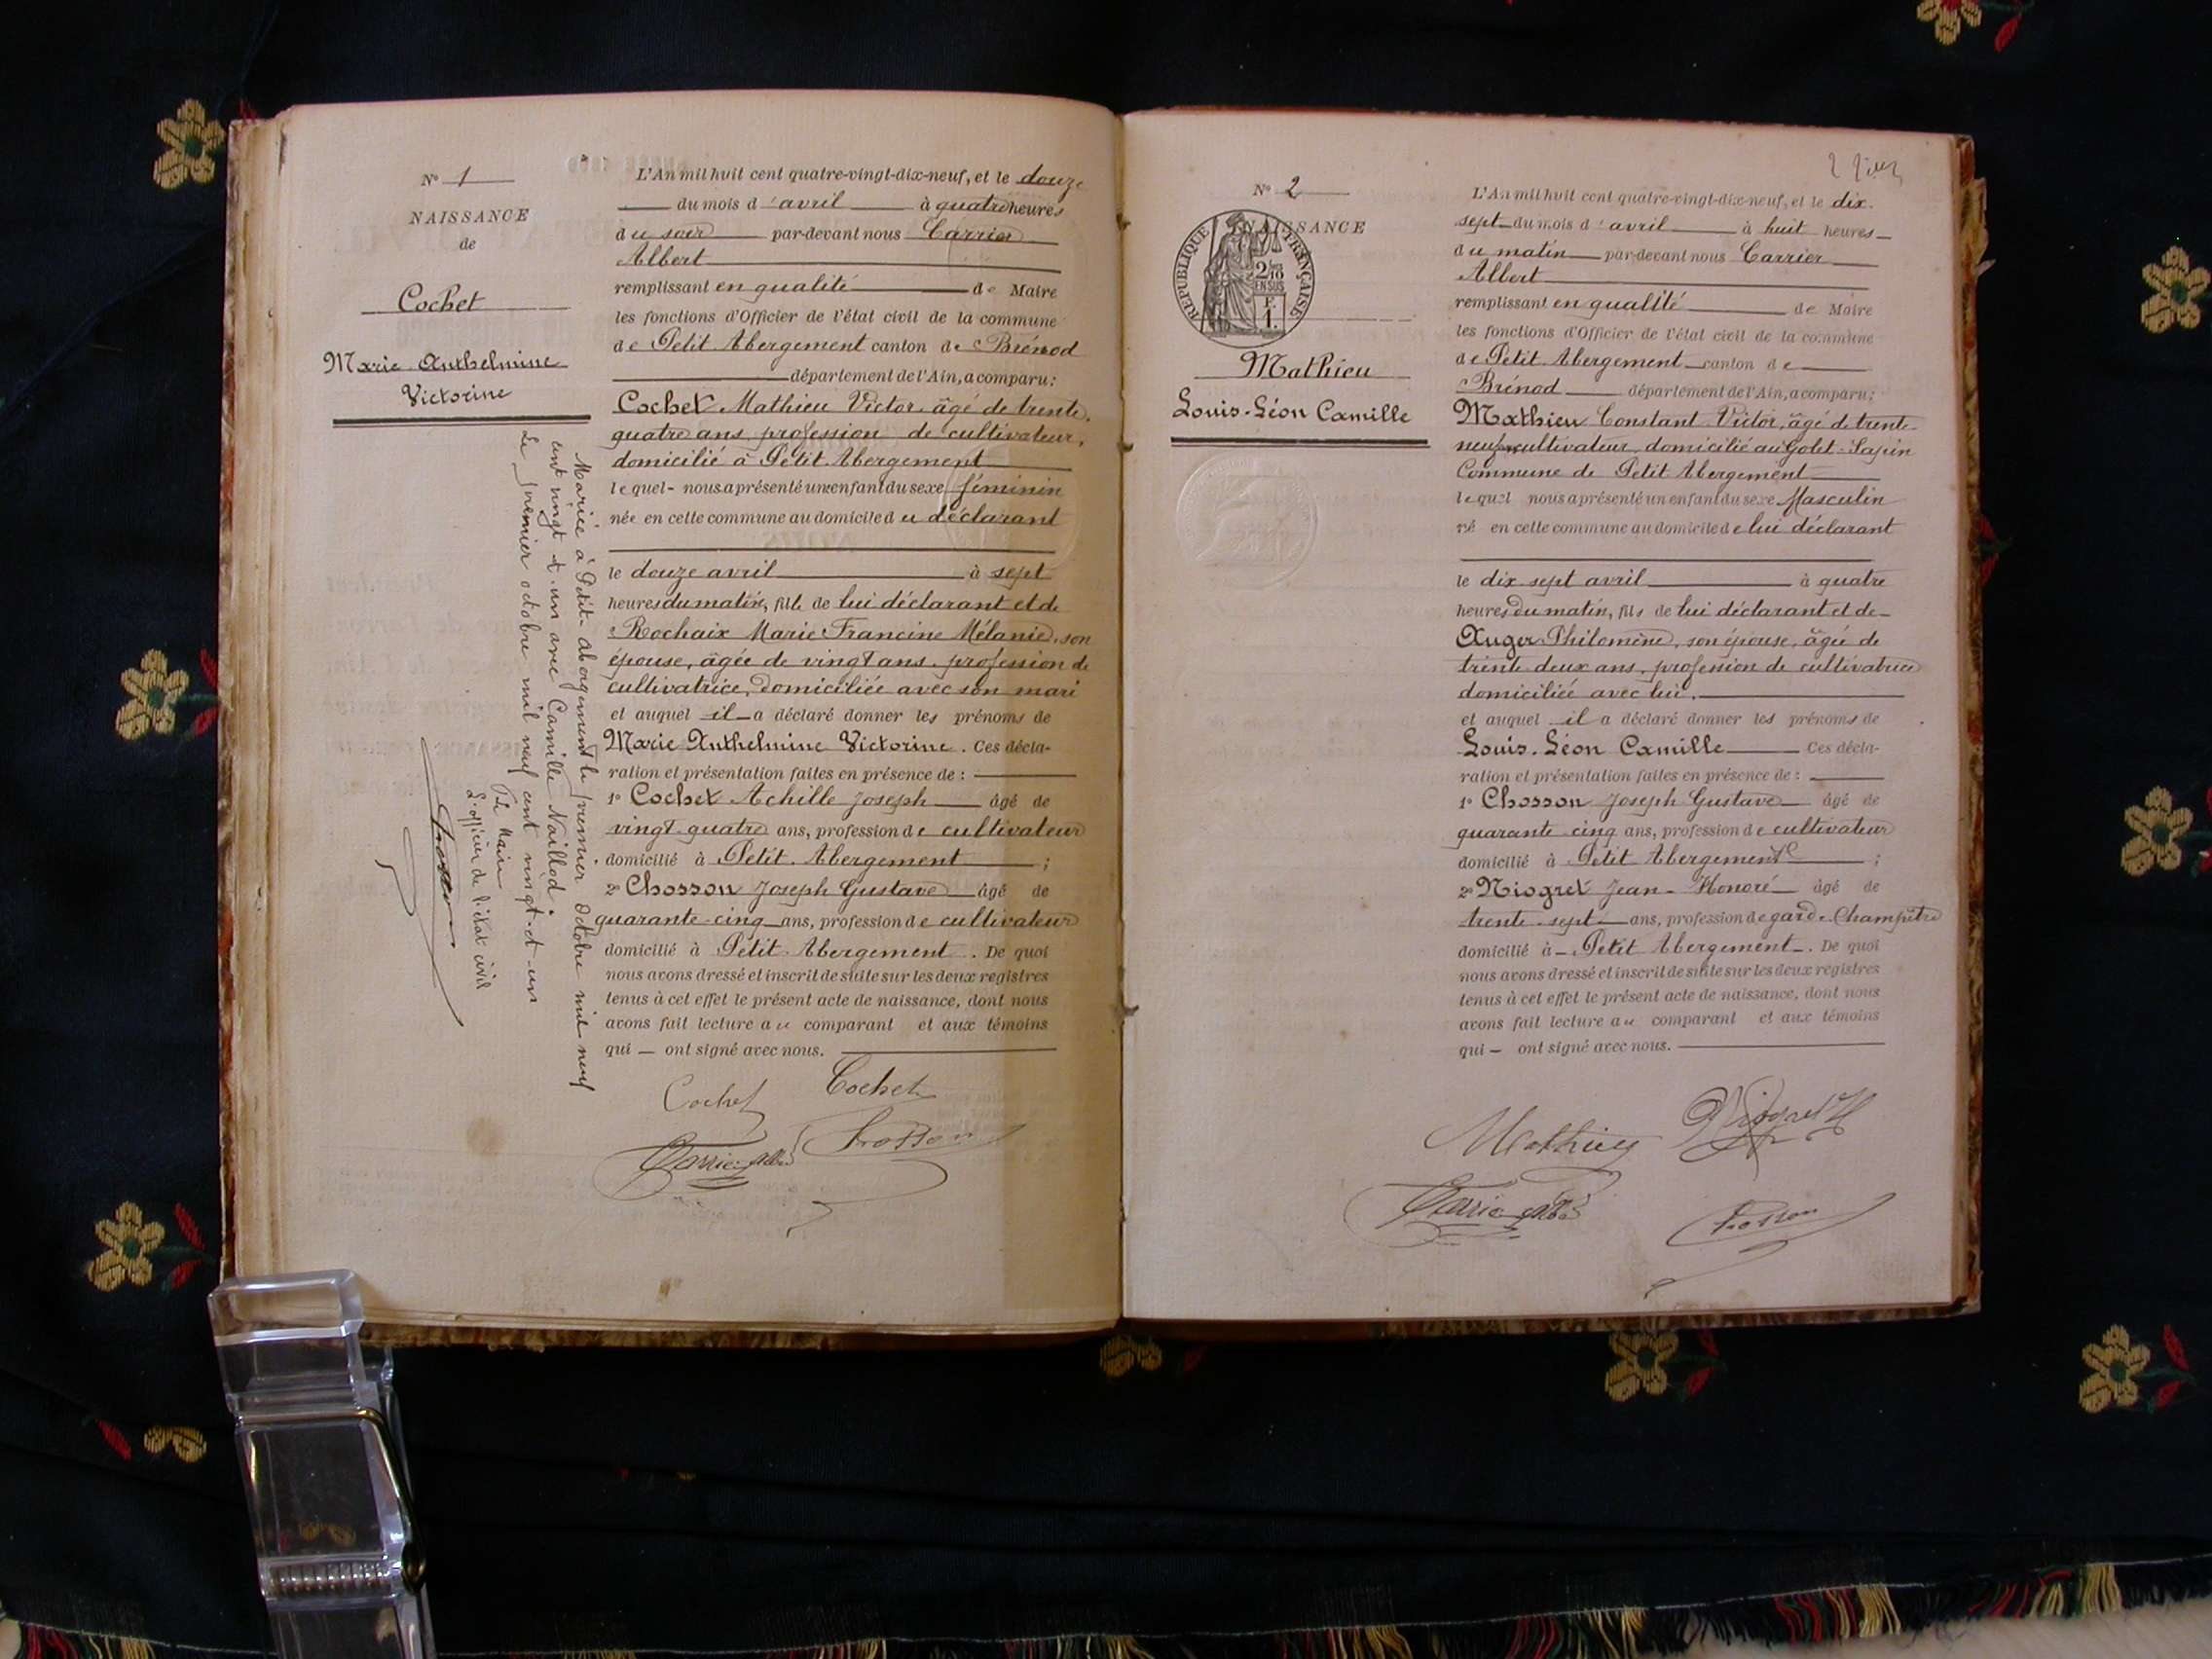 N° 1
NAISSANCE
de
Cochet
Marie Anthelmine
Victorine
Mariée à Petit-Abergement le premier Octobre mil neuf
cent vingt et un avec Camille Naillod.
Le premier octobre mil neuf cent vingt-et-un
Le Maire
L'officier de l'état civil
Chosson
L'An mil huit cent quatre-vingt-dix-neuf, et le douze
du mois d'avril à quatre heures
du soir par-devant nous Carrier
Albert
remplissant en qualité de Maire
les fonctions d'Officier de l'état civil de la commune
de Petit Abergement canton de Brénod
département de l'Ain, a comparu:
Cochet Mathieu Victor, âgé de trente
quatre ans profession de cultivateur,
domicilié à Petit Abergement
lequel nous a présenté un enfant du sexe féminin
née en cette commune au domicile du déclarant
le douze avril à sept
heures du matin, fille de lui déclarant et de
Rochaix Marie Francine Mélanie, son
épouse, âgée de vingt ans, profession de
cultivatrice, domiciliée avec son mari
et auquel il a déclaré donner les prénoms de
Marie Anthelmine Victorine. Ces décla-
ration et présentation faites en présence de :
1° Cochet Achille Joseph âgé de
vingt-quatre ans, profession de cultivateur
domicilié à Petit Abergement ;
2° Chosson Joseph Gustave âgé de
quarante-cinq ans, profession de cultivateur
domicilié à Petit Abergement. De quoi
nous avons dressé et inscrit de suite sur les deux registres
tenus à cet effet le présent acte de naissance, dont nous
avons fait lecture au comparant et aux témoins
qui — ont signé avec nous.
Cochet Cochet
Carrier Albert Chosson
N° 2
NAISSANCE
RÉPUBLIQUE FRANÇAISE
2/10
EN SUS
F.
1.
Mathieu
Louis-Léon Camille
L'An mil huit cent quatre-vingt-dix-neuf, et le dix-
sept du mois d'avril à huit heures
du matin par-devant nous Carrier
Albert
remplissant en qualité de Maire
les fonctions d'Officier de l'état civil de la commune
de Petit Abergement canton de
Brénod département de l'Ain, a comparu:
Mathieu Constant Victor, âgé de trente-
neuf cultivateur domicilié au Golet-Sapin
Commune de Petit Abergement
lequel nous a présenté un enfant du sexe Masculin
né en cette commune au domicile de lui déclarant
le dix sept avril à quatre
heures du matin, fils de lui déclarant et de
Auger Philomène, son épouse, âgée de
trente deux ans, profession de cultivatrice
domiciliée avec lui.
et auquel il a déclaré donner les prénoms de
Louis-Léon Camille Ces décla-
ration et présentation faites en présence de :
1° Chosson Joseph Gustave âgé de
quarante cinq ans, profession de cultivateur
domicilié à Petit Abergement ;
2° Niogret Jean-Honoré âgé de
trente-sept ans, profession de garde-Champêtre
domicilié à Petit Abergement. De quoi
nous avons dressé et inscrit de suite sur les deux registres
tenus à cet effet le présent acte de naissance, dont nous
avons fait lecture au comparant et aux témoins
qui — ont signé avec nous.
Mathieu Niogret H
Carrier Albert Chosson